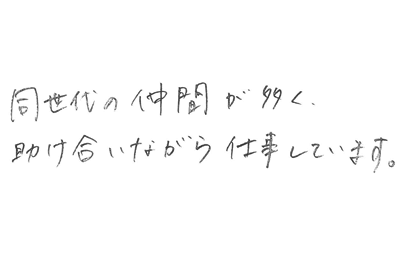 同世代の仲間が多く、
助け合いながら仕事しています。